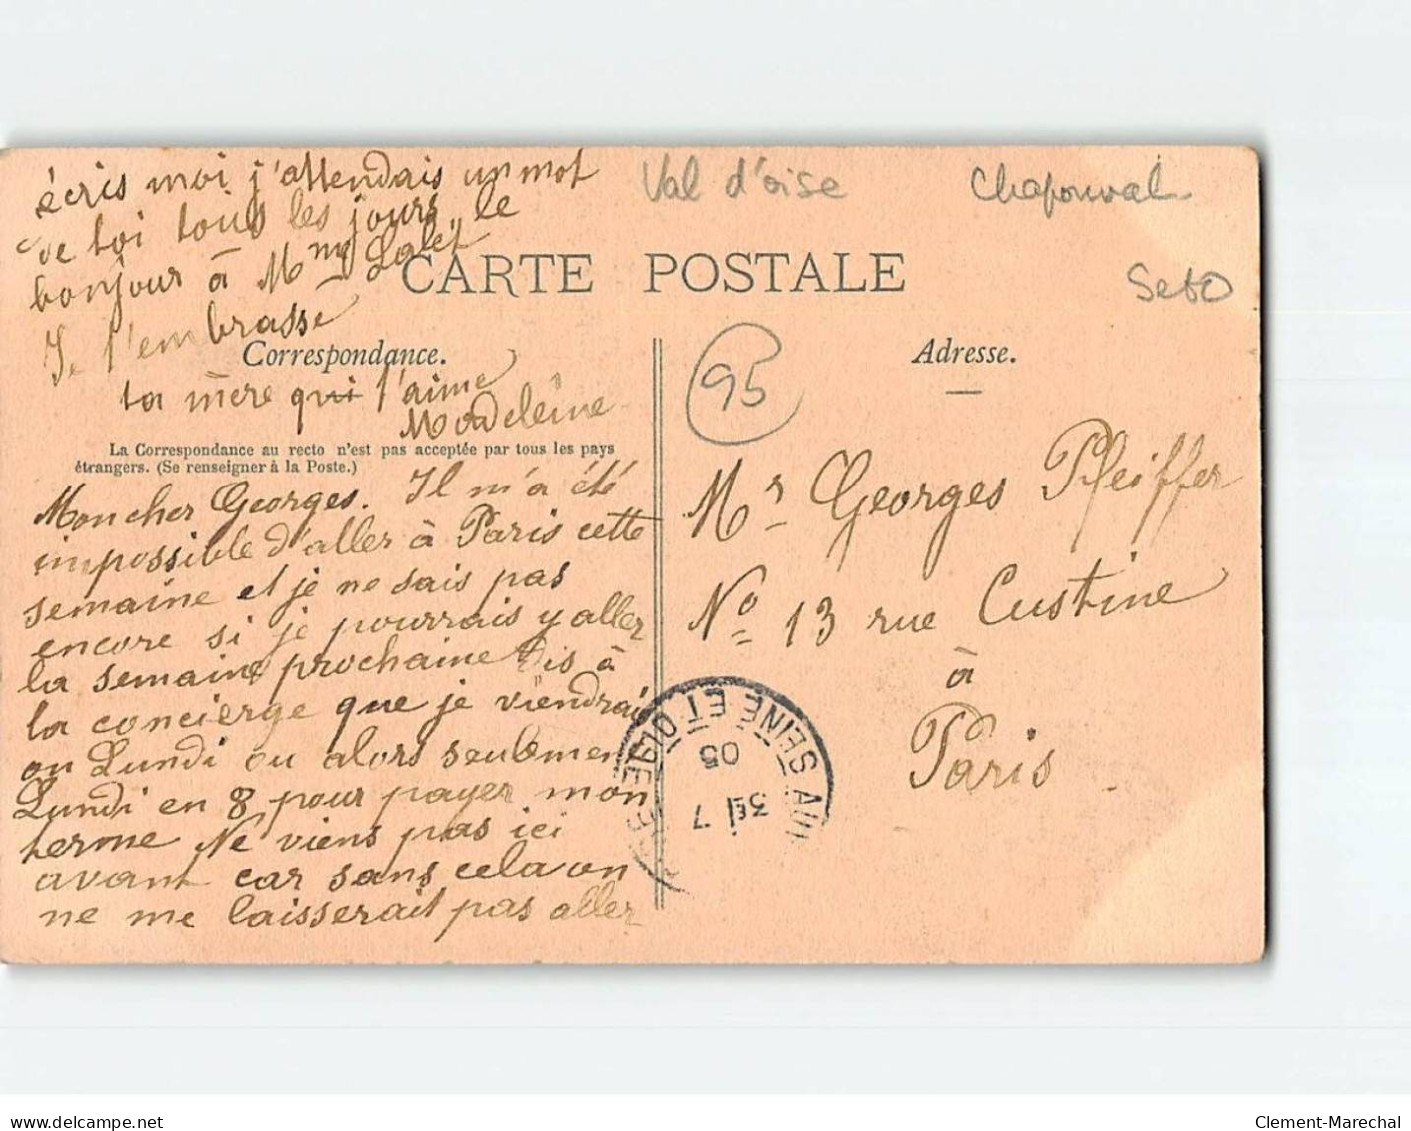 écris moi j'attendais un mot
de toi tous les jours, le
bonjour à Mme Lalet
Je t'embrasse
ta mère qui t'aime
Madeleine
Val d'oise
Chaponval
CARTE POSTALE
Correspondance.
Adresse.
95
La Correspondance au recto n'est pas acceptée par tous les pays
étrangers. (Se renseigner à la Poste.)
Mon cher Georges. Il m'a été
impossible d'aller à Paris cette
semaine et je ne sais pas
encore si je pourrais y aller
la semaine prochaine Dis à
la concierge que je viendrais
ou Lundi ou alors seulement
Lundi en 8 pour payer mon
terme Ne viens pas ici
avant car sans cela on
ne me laisserait pas aller
Mr Georges Pfeiffer
No 13 rue Custine
à
Paris
SEINE ET OISE
05
7
delcampe.net
Clement-Marechal